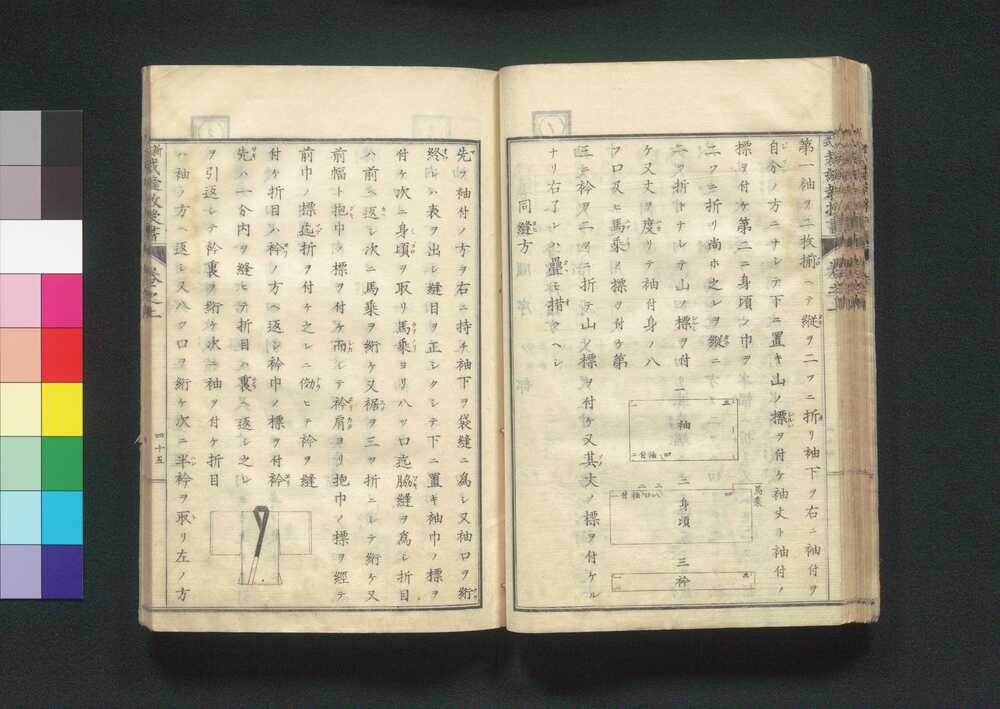 第一袖ヲ二枚揃ヘテ縱ヲ二ツニ折リ袖下ヲ右ニ袖付ヲ
自分ノ方ニナシテ下ニ置キ山ノ標ヲ付ケ袖丈ト袖付ノ
標ヲ付ケ第二ニ身頃ノ巾ヲ
二ツニ折リ尚ホ之レヲ縱ニ
二ツ折トナシテ山ノ標ヲ付
ケ又丈ヲ度リテ袖付身ノ八
ツ口及ヒ馬乗ノ標ヲ付ケ第
三ニ衿ヲ二ツニ折テ山ノ標ヲ付ケ又其丈ノ標ヲ付ケル
ナリ右了レハ疊ミ措クヘシ
同縫方
一袖
二身頃
三衿
馬乗
袖付
先ツ袖付ノ方ヲ右ニ持チ袖下ヲ袋縫ニ為シ又袖口ヲ絎
終レハ表ヲ出シ縫目ヲ正シクシテ下ニ置キ袖巾ノ標ヲ
付ケ次ニ身頃ヲ取リ馬乗ヨリ八ツ口迄脇縫ヲ為シ折目
ハ前ニ返シ次ニ馬乗ヲ絎ケ又裾ヲ三ツ折ニシテ絎ケ又
前幅ト抱巾ノ標ヲ付ケ而シテ衿肩ヨリ抱巾ノ標ヲ經テ
前巾ノ標迄折ヲ付ケ之レニ倣ヒテ衿ヲ縫
付ケ折目ハ衿ノ方ヘ返シ衿巾ノ標ヲ付ケ衿
先ハ一分内ヲ縫ヒテ折目ハ裏ヘ返シ之レ
ヲ引返シテ衿裏ヲ絎ケ次ニ袖ヲ付ケ折目
ハ袖ノ方ヘ返シ又八ツ口ヲ絎ケ次ニ半衿ヲ取リ左ノ方
四十五